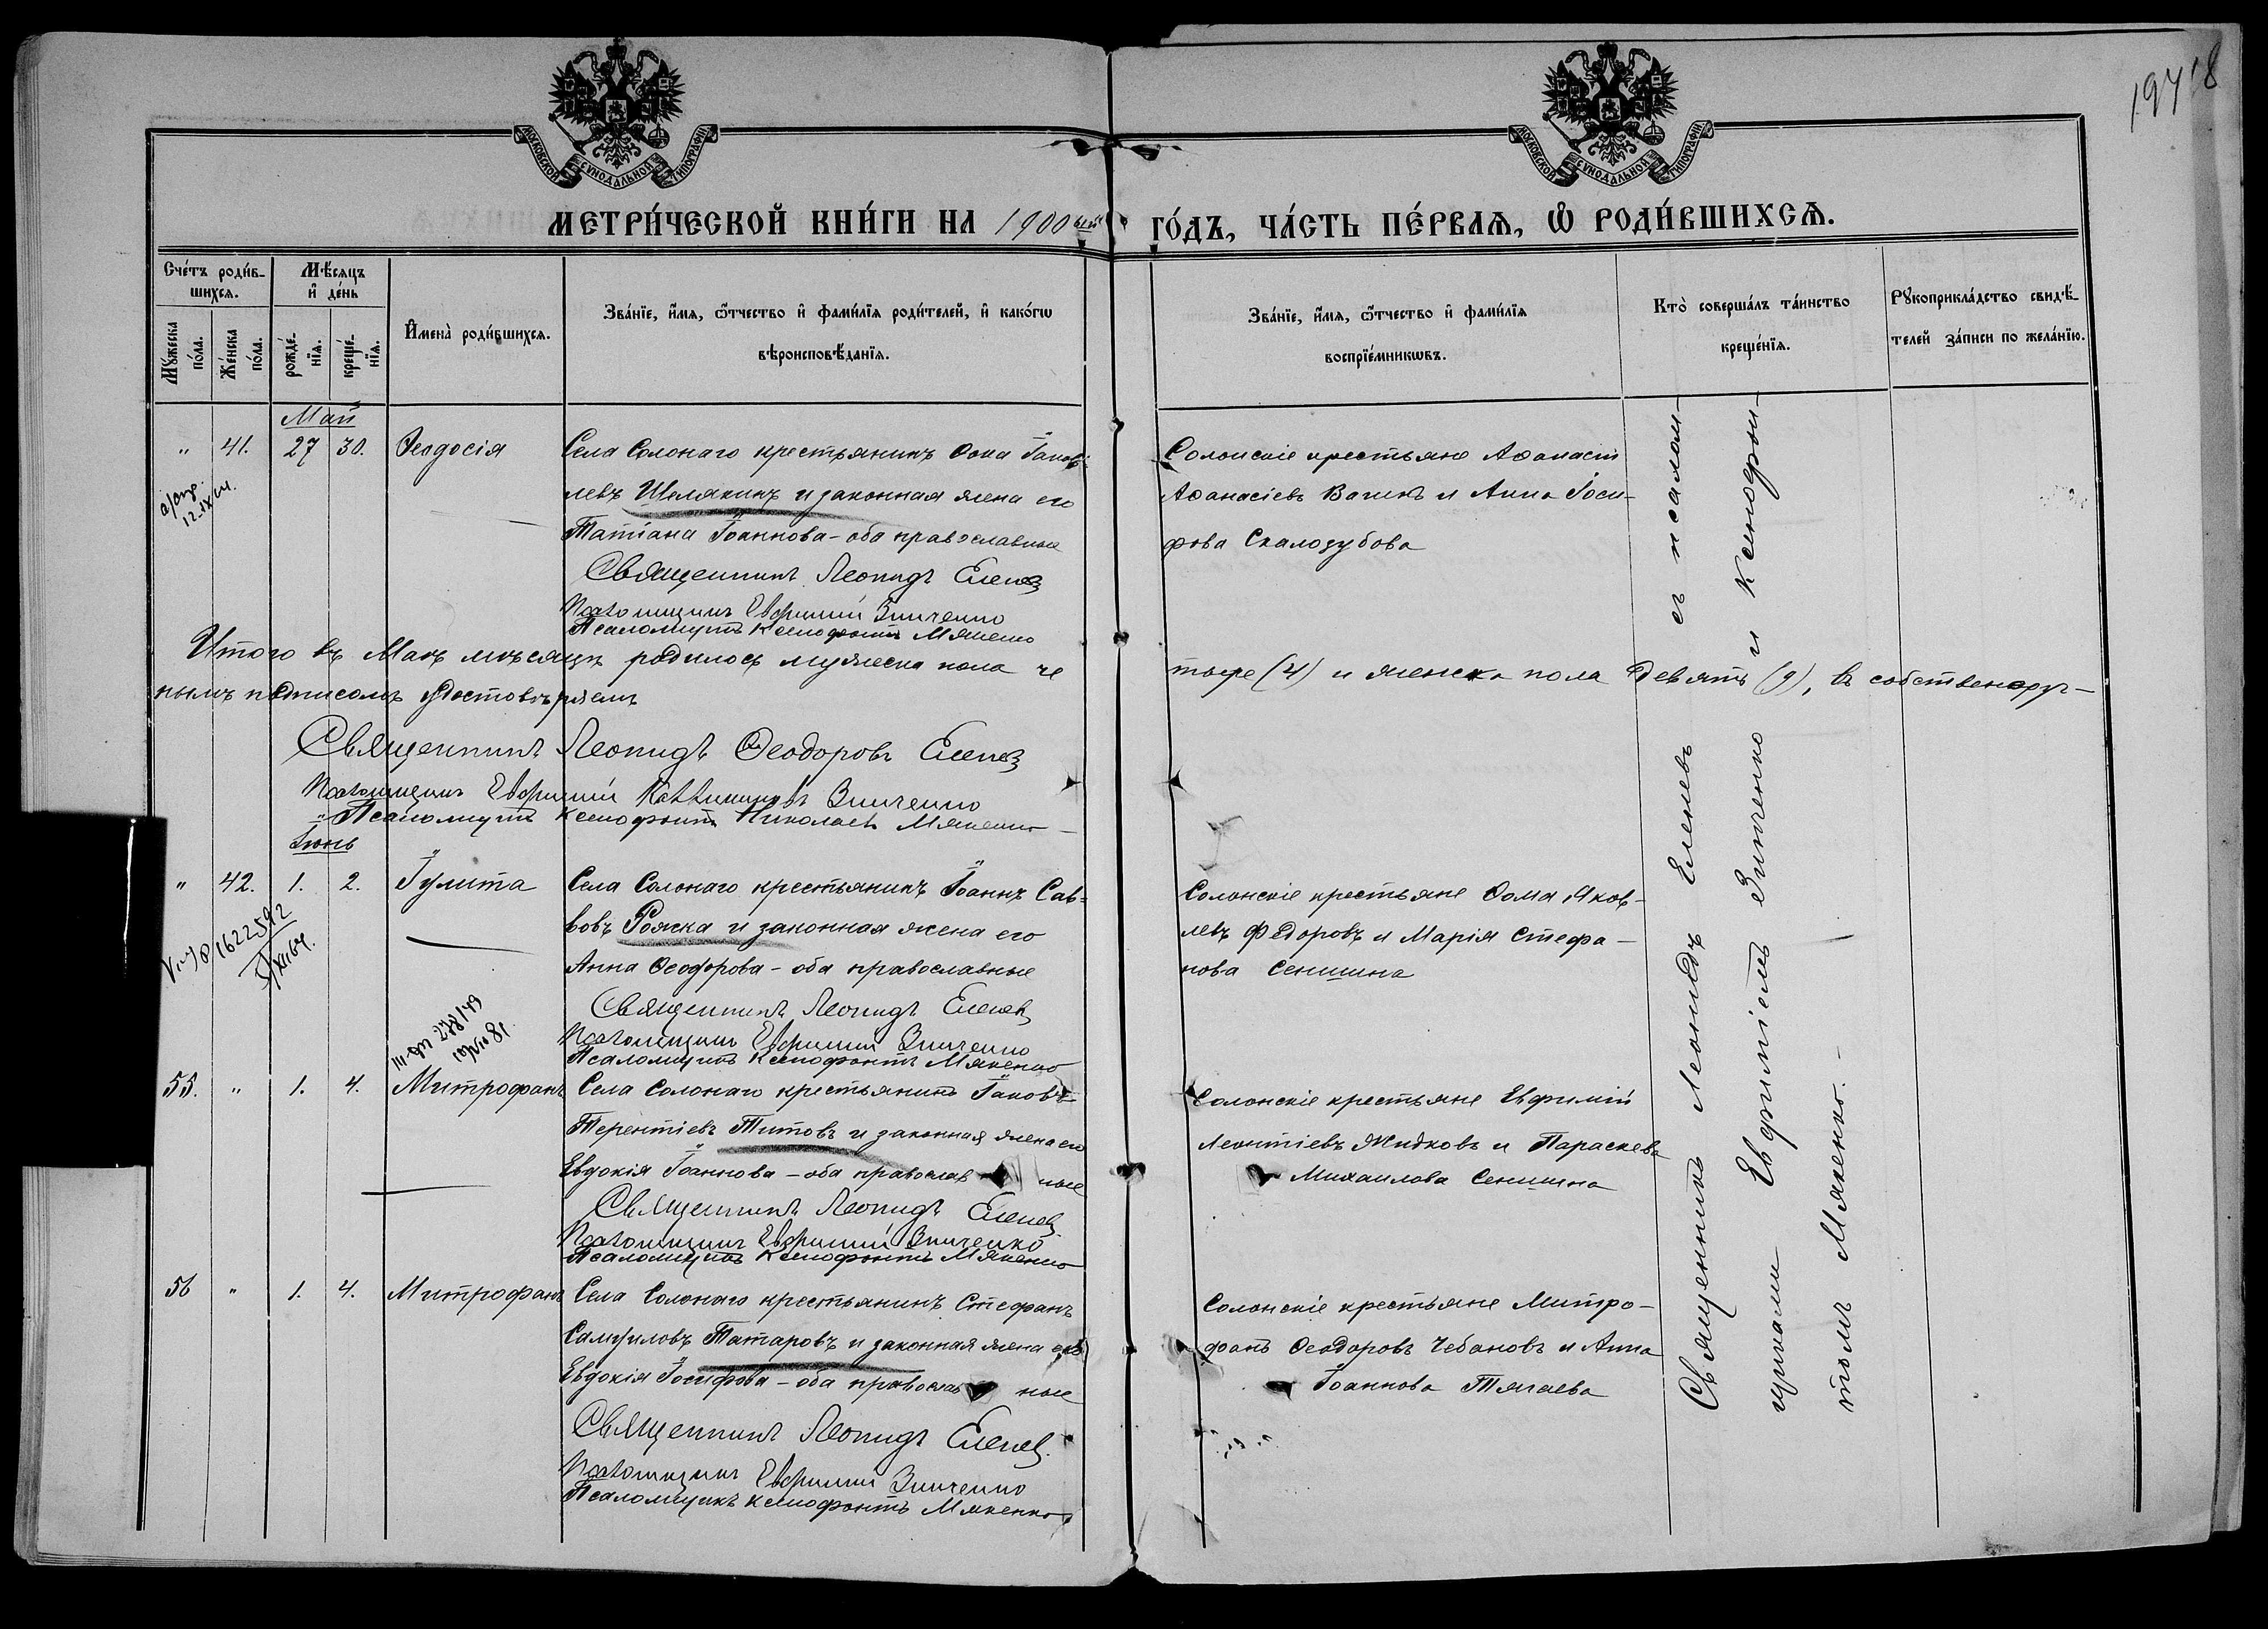 197 18
МОСКОВСКОЙ СѴНОДАЛЬНОЙ ТИПОГРАФІИ.
МОСКОВСКОЙ СѴНОДАЛЬНОЙ ТИПОГРАФІИ.
МЕТРИ́ЧЕСКОЙ КНИ́ГИ НА 1900 ГО́ДЪ, ЧА́СТЬ ПЕ́РВАѦ, Ѽ РОДИ́ВШИХСѦ.
Сче́тъ роди́в-
шихсѧ.
Мꙋ́жеска по́ла.
Же́нска по́ла.
Мѣ́сѧцъ
и҆ де́нь
рожде́-нїѧ.
креще́-нїѧ.
И҆мена̀ роди́вшихсѧ.
Зва́нїе, и҆́мѧ, ѻ҆́тчество и҆ фами́лїѧ роди́телей, и҆ како́гѡ
вѣроисповѣ́данїѧ.
Зва́нїе, и҆́мѧ, ѻ҆́тчество и҆ фами́лїѧ
воспрїе́мникѡвъ.
Кто̀ соверша́лъ та́инство
креще́нїѧ.
Рꙋкоприкла́дство свидѣ́-
телей за́писи по жела́нїю.
Май
" 41. 27 30. Ѳеодосія
Села Солонаго крестьянинъ Ѳока Іаков-
левъ Шелякинъ и законная жена его
Татіана Іоаннова - оба православные
Священникъ Леонидъ Еленев
Псаломщикъ Евфимій Зинченко
Псаломщикъ Ксенофонтъ Мякенко
Солонскіе крестьяне Аѳанасій
Аѳанасіевъ Вагинъ и Анна Іоси-
фова Скалозубова
12.IX
Итого въ Маѣ мѣсяцѣ родилось мужеска пола че
тыре (4) и женска пола девять (9), въ собственоруч-
нымъ подписомъ удостовѣряемъ
Священникъ Леонидъ Ѳеодоровъ Еленев
Псаломщикъ Евфимій Зинченко
Псаломщикъ Ксенофонтъ Николаевъ Мякенко
Іюнь
" 42. 1. 2. Іулита
Села Солонаго крестьянинъ Іоаннъ Сав-
вовъ Рожка и законная жена его
Анна Ѳеодорова - оба православные
Священникъ Леонидъ Еленев
Псаломщикъ Евфимій Зинченко
Псаломщикъ Ксенофонтъ Мякенко
Солонскіе крестьяне Ѳома Яков-
левъ Федоровъ и Марія Стефа-
нова Сенишна
55. " 1. 4. Митрофанъ
Села Солонаго крестьянинъ Іаковъ
Терентіевъ Титовъ и законная жена его
Евдокія Іоаннова - оба православ ные
Священникъ Леонидъ Еленев
Псаломщикъ Евфимій Зинченко
Псаломщикъ Ксенофонтъ Мякенко
Солонскіе крестьяне Евфимій
Леонтіевъ Жидковъ и Параскева
Михаилова Сенишна
56 " 1. 4. Митрофанъ
Села Солонаго крестьянинъ Стефанъ
Самуиловъ Татаровъ и законная жена его
Евдокія Іосифова - оба православ ные
Священникъ Леонидъ Еленев.
Псаломщикъ Евфимій Зинченко
Псаломщикъ Ксенофонтъ Мякенко
Солонскіе крестьяне Митро-
фанъ Ѳеодоровъ Чебановъ и Анна
Іоаннова Тягаева
Священникъ Леонидъ Еленевъ съ псалом-
щиками Евфиміемъ Зинченко и Ксенофон-
томъ Мякенко. -